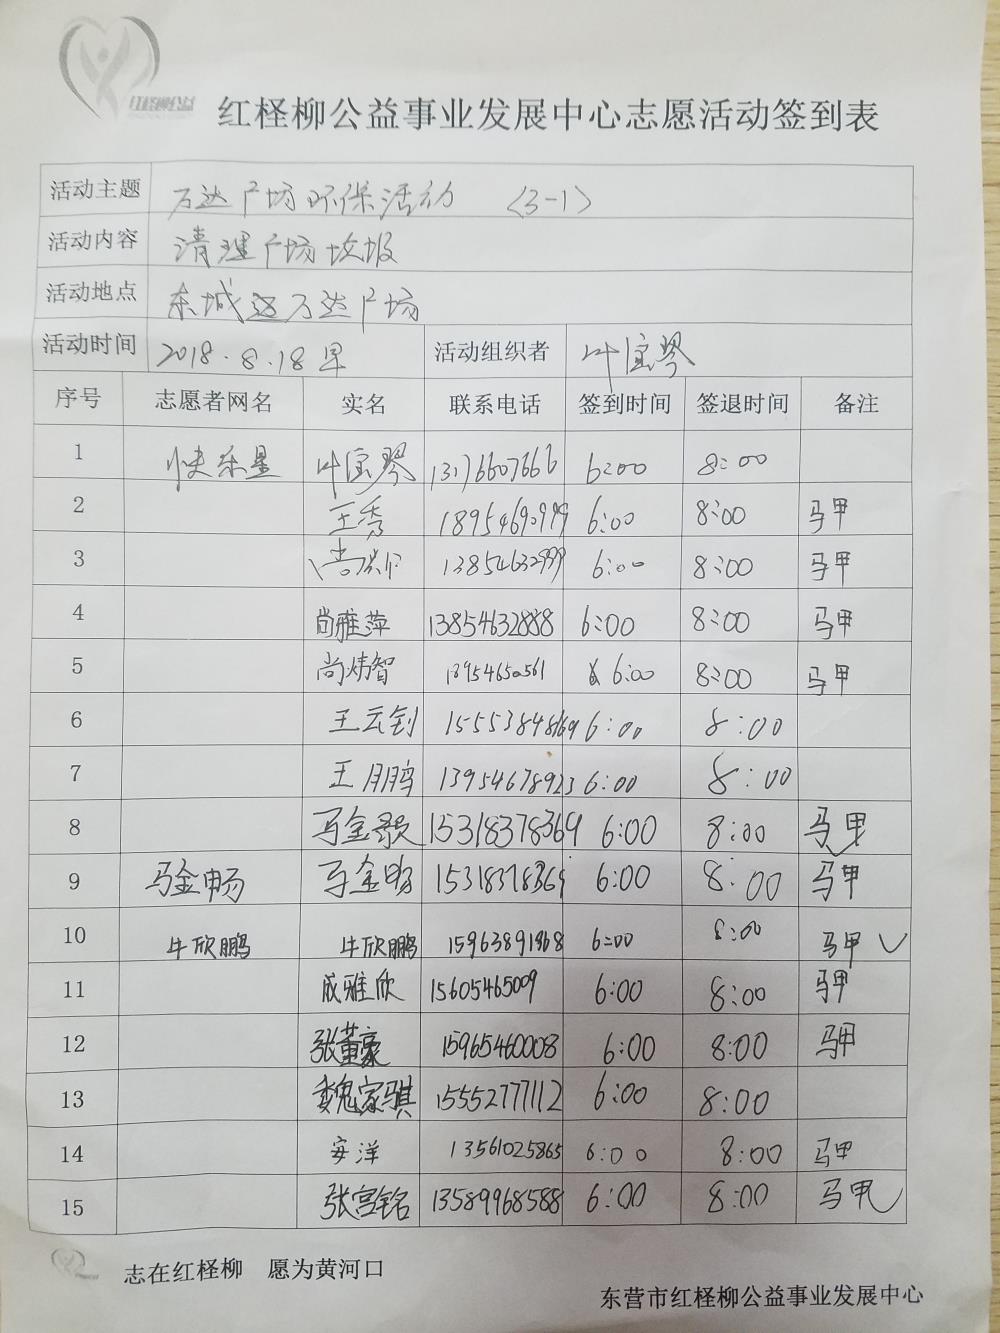 红柽柳公益
红柽柳公益事业发展中心志愿活动签到表
活动主题 万达广场环保活动 (3-1)
活动内容 清理广场垃圾
活动地点 东城万达广场
活动时间 2018.8.18早 活动组织者 叶宝琴
序号 志愿者网名 实名 联系电话 签到时间 签退时间 备注
1 快乐星 叶宝琴 13176607666 6:00 8:00
2 王秀 18954690999 6:00 8:00 马甲
3 13854632999 6:00 8:00 马甲
4 尚雅萍 13854632888 6:00 8:00 马甲
5 尚炳智 13954650561 6:00 8:00 马甲
6 王云钊 15553848169 6:00 8:00
7 王朋鹏 13954678923 6:00 8:00
8 马金歌 15318378369 6:00 8:00 马甲
9 马金畅 马金畅 15318378369 6:00 8:00 马甲
10 牛欣鹏 牛欣鹏 15963891968 6:00 8:00 马甲 ✓
11 成雅欣 15605465009 6:00 8:00 马甲
12 张董豪 15965460008 6:00 8:00 马甲
13 魏家骐 15552777112 6:00 8:00
14 安洋 13561025865 6:00 8:00 马甲
15 张宫铭 13589968588 6:00 8:00 马甲✓
志在红柽柳 愿为黄河口
东营市红柽柳公益事业发展中心